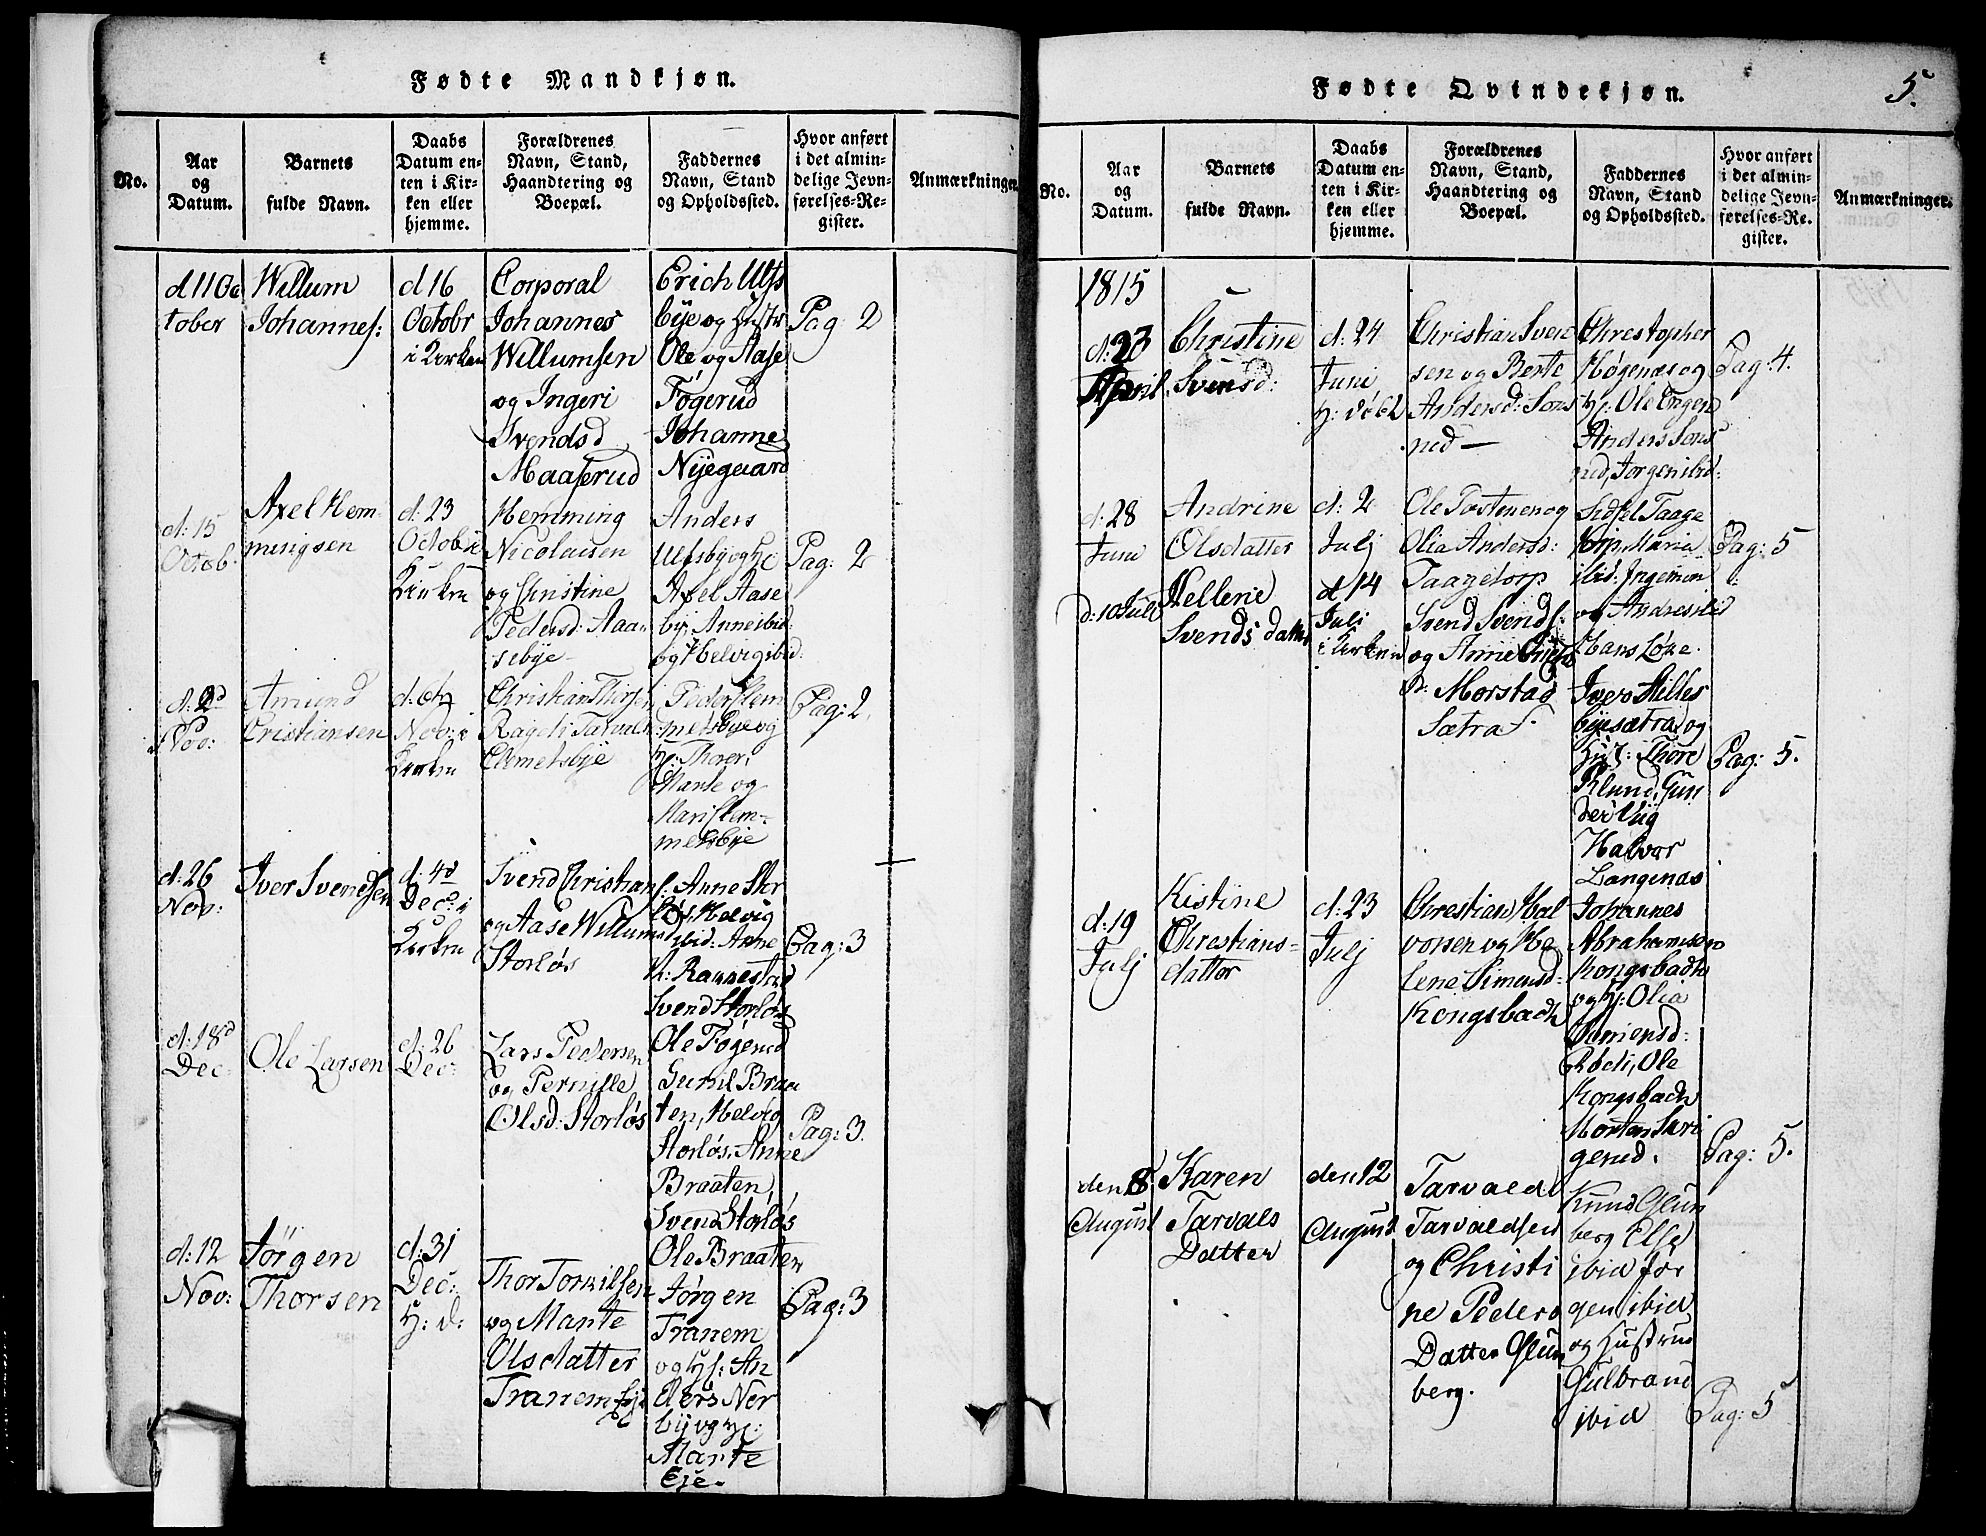 Fødte Mandkjøn.
No.
Aar
og
Datum.
Barnets
fulde Navn.
Daabs
Datum en-
ten i Kir-
ken eller
hjemme.
Forældrenes
Navn, Stand,
Haandtering og
Boepæl.
Faddernes
Navn, Stand
og Opholdssted.
Hvor anført
i det almin-
delige Jevn-
førelses-Re-
gister.
Anmærkninger.
d 11 Oc
tober
Willum
Johannes:
d 16
Octobr
i Kirken
Corporal
Johannes
Willumsen
og Ingeri
Svendsd
Maaserud
Erich Ulfs
bye og Hustr
Ole og Aase
Fögerud
Johanne
Nyegaard
Pag: 2
d: 15
Octob.
Axel Hem-
mingsen
d: 23
Octob i
Kirken
Hemming
Nicolaisen
og Christine
Pedersd: Aaa-
sebye
Anders
Ulfsby og H:
Axel Aase
by, Anne ibid:
og Helvig ibid:
Pag: 2
d: 2d
Nov:
Amund
Cristiansen
d: 6
Nov: i
Kirken
Christian
Clemetsbye
Peder Clem
metsbye og
Marte og
Mari Clem-
metsbye
Pag: 2
d: 26
Nov:
Iver Svendsen
d: 4d
Dec: i
Kirken
Svend Christians
og Aase Willumsd
Storløs
Anne Stor
løs, Helvig
ibid: Anne
Svend Storløs
Pag: 3
d: 18d
Dec:
Ole Larsen
d: 26
Dec:
Lars Pedersen
og Pernille
Olsd: Storløs
Ole Fögerud
Gunil Braa
ten, Helvig
Storløs, Anne
Braaten,
Svend Storløs
Pag: 3.
d: 12
Nov:
Jörgen
Thorsen
d: 31
Dec:
H: d:
Thor Torkilsen
og Marte
Olsdatter
Tranem
Ole Braaten
Jörgen
Tranem
og H: An
ders Ner
by og H:
Marte
Eje.
Pag: 3
Fødte Qvindekjøn.
5.
No.
Aar
og
Datum.
Barnets
fulde Navn.
Daabs
Datum en-
ten i Kir-
ken eller
hjemme.
Forældrenes
Navn, Stand,
Haandtering og
Boepæl.
Faddernes
Navn, Stand
og Opholdssted.
Hvor anført
i det almin-
delige Jevn-
førelses-Re-
gister.
Anmærkninger.
1815
d: 23
April
Christine
Svensd:
d: 24
Juni
Christian Sven
sen og Berte
Andersd: Sons
ned
Chrestopher
Høgenæs og
H: Ole Engen
Anders Sons
ned, Jorgen ibid:
Pag: 4.
d: 28
Juni
Andrine
Olsdatter
d: 2
Julj
Ole Tostensen og
Olia Andersd:
Taagetorp
Sidsel Taage
torp, Maria
ibid: Ingemon
og Andres ibid
Hans Löke.
Pag: 5
d: 10 Juli
Hellene
Svends datter
d 14
Juli
i Kirken
Svend Svends:
og Anne
Morstad
Sætra
Iver Hilles
byesætra og
Hust: Thore
Rlund, Gun
der Viig
Halvor
Langenæs
Pag: 5.
d: 19
Julj
Kistine
Chrestians-
datter
d: 23
Julj
Chrestian Hal
vorsen og He
lene Simensd:
Kongsbadh
Johannes
Abrahamsen
Kongsbadh
og H: Olia
Rödi, Ole
Kongsbadh
Morten Skri
gerud.
Pag: 5.
den 8
August
Karen
Tarvals
Datter
den 12
August
Tarvald
Tarvaldsen
og Christi
ne Peders
Datter Glun
berg.
Knud Glun
berg Else
ibid Jör
gen ibid
og Hustrue
Gulbrand
ibid
Pag: 5